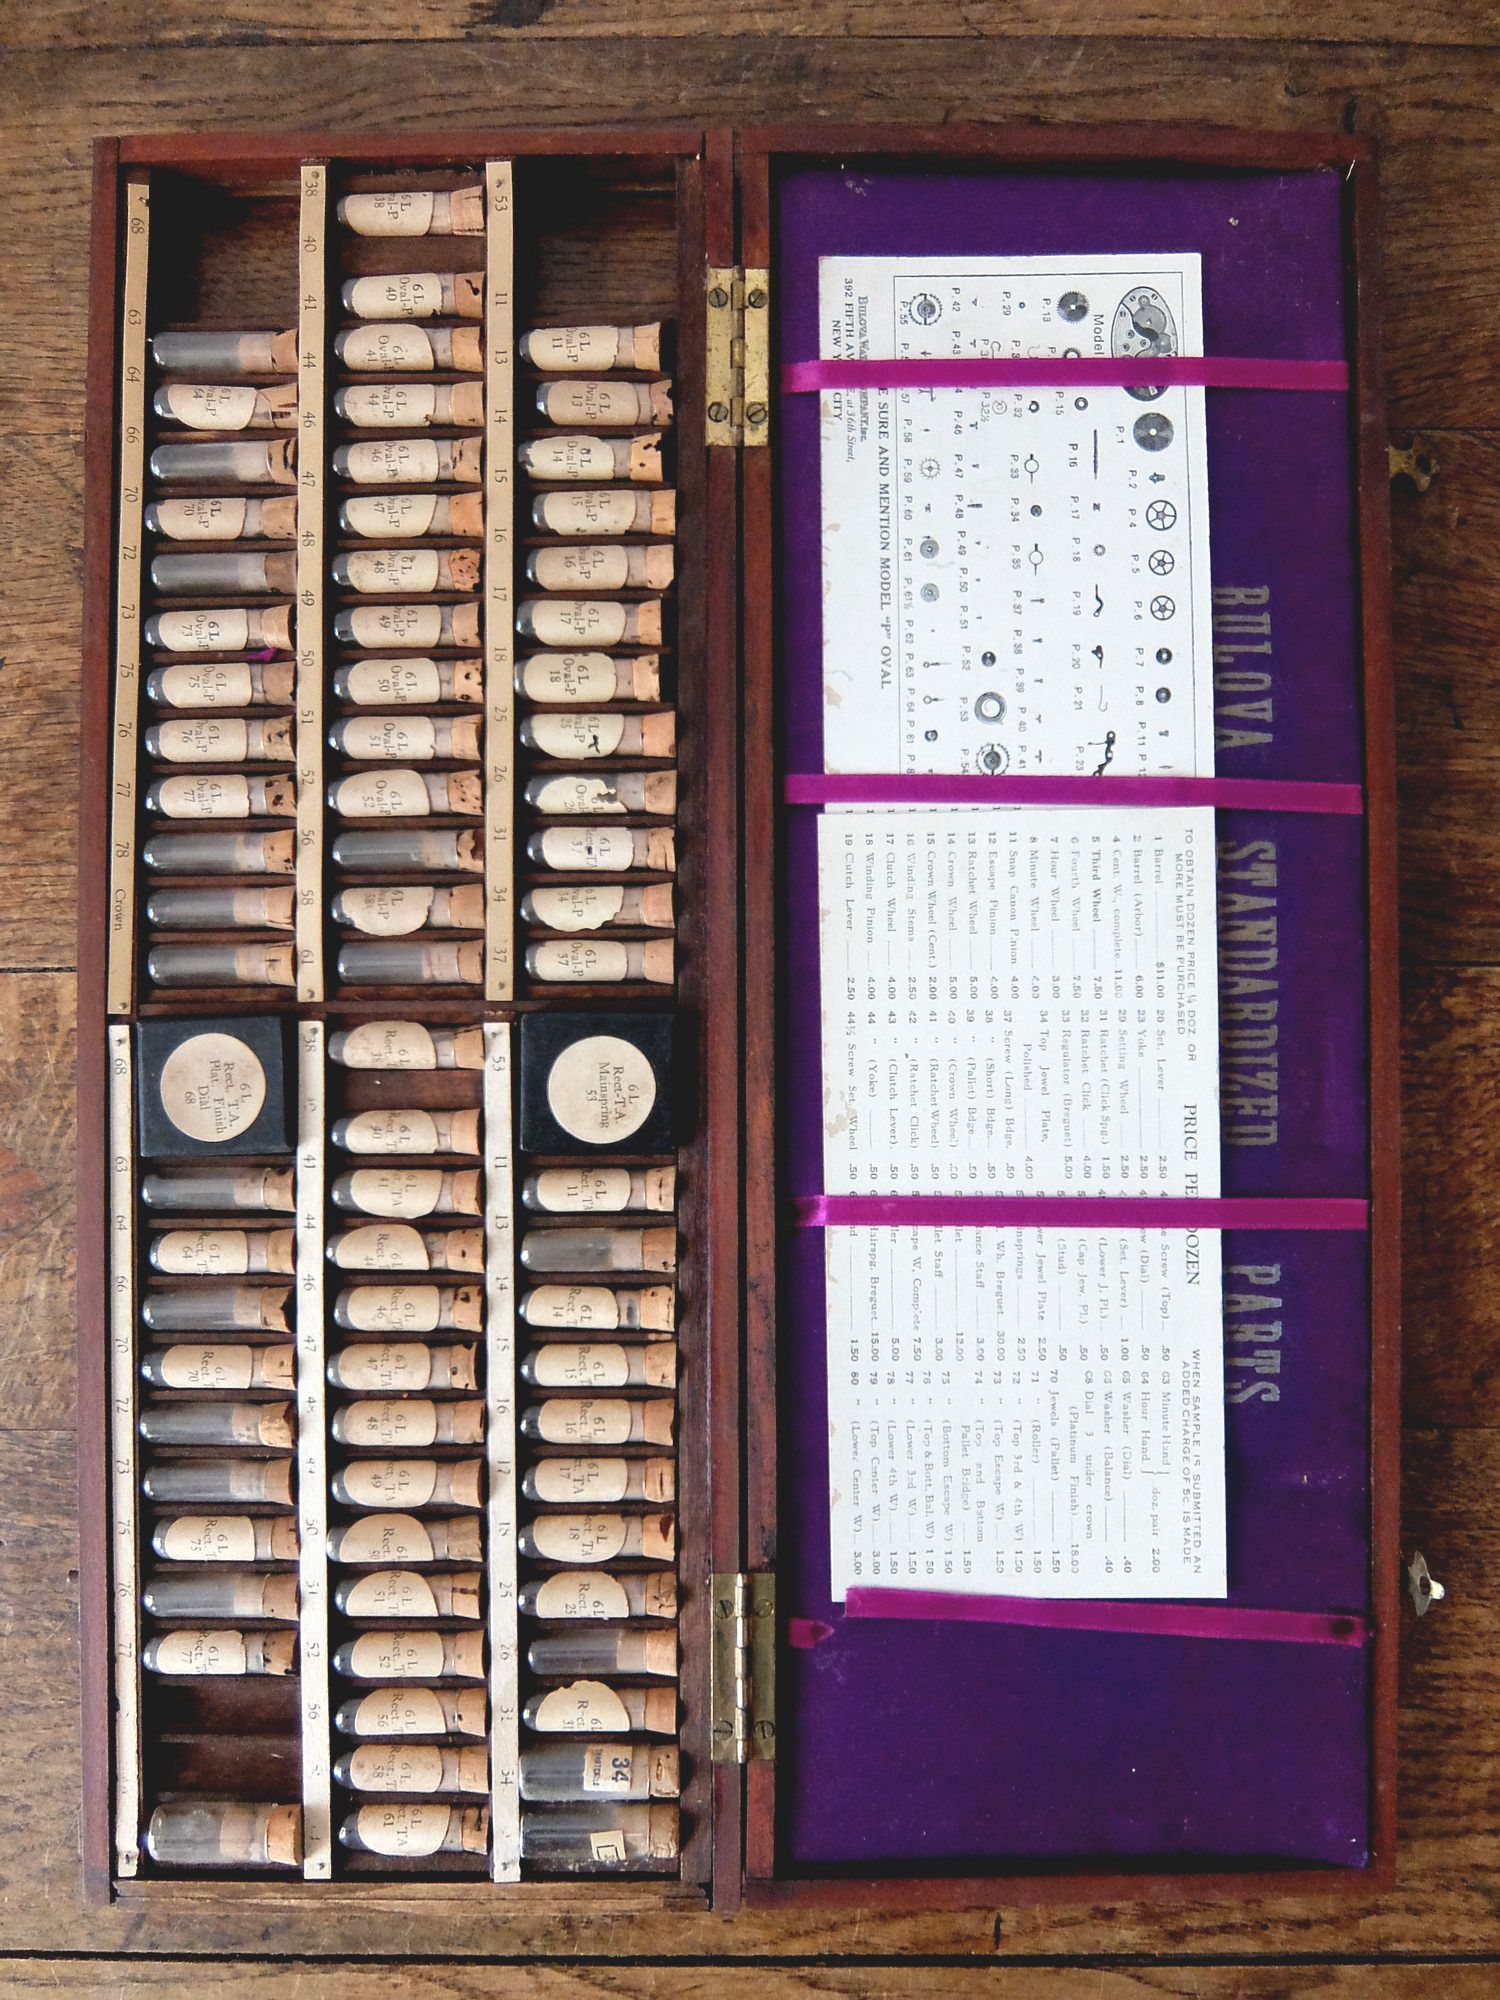 BULOVA STANDARDIZED PARTS
Model
P.1 P.2 P.4 P.5 P.6 P.7 P.8 P.11
P.13 P.15 P.16 P.17 P.18 P.19 P.20 P.21 P.23
P.29 P.32 P.33 P.34 P.35 P.37 P.38 P.39 P.40 P.41
P.32½
P.42 P.43 P.46 P.47 P.48 P.49 P.50 P.51 P.52 P.53 P.54
P.55 P.58 P.59 P.60 P.61 P.61½ P.62 P.63 P.64 P.81
E SURE AND MENTION MODEL "P" OVAL
392 FIFTH AV at 36th Street,
NEW Y CITY
TO OBTAIN DOZEN PRICE ¼ DOZ. OR
MORE MUST BE PURCHASED
PRICE PE DOZEN
WHEN SAMPLE IS SUBMITTED AN
ADDED CHARGE OF 5C IS MADE
1 Barrel $11.00
2 Barrel (Arbor) 6.00
4 Cent. W., complete 11.00
5 Third Wheel 7.50
6 Fourth Wheel 7.50
7 Hour Wheel 3.00
8 Minute Wheel 4.00
11 Snap Canon Pinion 4.00
12 Escape Pinion 4.00
13 Ratchet Wheel 5.00
14 Crown Wheel 5.00
15 Crown Wheel (Cent.) 2.00
16 Winding Stems 2.50
17 Clutch Wheel 4.00
18 Winding Pinion 4.00
19 Clutch Lever 2.50
20 Set. Lever 2.50
23 Yoke 2.50
29 Setting Wheel 2.50
31 Ratchet (Click Spg.) 1.50
32 Ratchet Click 4.00
33 Regulator (Breguet) 5.00
34 Top Jewel Plate,
Polished 4.00
37 Screw (Long) Bdge. .50
38 " (Short) Bdge. .50
39 " (Pallet) Bdge. .50
40 " (Crown Wheel) .50
41 " (Ratchet Wheel) .50
42 " (Ratchet Click) .50
43 " (Clutch Lever) .50
44 " (Yoke) .50
44½ Screw Set. Wheel .50
e Screw (Top) .50
ew (Dial) .50
(Set. Lever) 1.00
(Lower J. Pl.) .50
(Cap Jew. Pl.) .50
(Stud) .50
wer Jewel Plate 2.50
nsprings 2.50
Wh. Breguet 30.00
ance Staff 3.00
llet 12.00
let Staff 3.00
cape W. Complete 7.50
ller 5.00
Hairspg. Breguet 15.00
1.50
63 Minute Hand
64 Hour Hand
doz. pair 2.00
65 Washer (Dial) .40
Washer (Balance) .40
68 Dial 3 under crown
(Platinum Finish) 18.00
70 Jewels (Pallet) 1.50
71 " (Roller) 1.50
72 " (Top 3rd & 4th W) 1.50
73 " (Top Escape W) 1.50
74 " (Top and Bottom
Pallet Bridge) 1.50
75 " (Bottom Escape W) 1.50
76 " (Top & Bott. Bal. W) 1.50
77 " (Lower 3rd W) 1.50
78 " (Lower 4th W) 1.50
79 " (Top Center W) 3.00
80 " (Lower Center W) 3.00
53 11 13 14 15 16 17 18 25 26 31 34 37
38 40 41 44 46 47 48 49 50 51 52 56 58 61
68 63 64 66 70 72 73 75 76 77 78 Crown
53 11 13 14 15 16 17 18 25 26 31 34
38 41 44 46 47 48 50 51 52 56
68 63 64 66 70 72 73 75 76 77
6L
Rect-T.A.
Mainspring
53
6L
Rect. T.A.
Plat. Finish
Dial
68
6L Oval-P 11
6L Oval-P 13
6L Oval-P 14
6L Oval-P 15
6L Oval-P 16
6L Oval-P 17
6L Oval-P 18
6L 25
Oval 26
34
6L Oval-P 37
6L Oval-P 38
6L Oval-P 40
6L Oval-P 41
6L Oval-P 44
6L Oval-P 46
6L Oval-P 47
6L Oval-P 48
6L Oval-P 49
6L Oval-P 50
6L Oval-P 51
6L Oval-P 52
6L Oval-P 64
6L Oval-P 70
6L Oval-P 73
6L Oval-P 75
6L Oval-P 76
6L Oval-P 77
6L Rect. TA 11
6L Rect. 14
6L Rect. T 15
6L Rect. 16
6L Rect. TA 17
6L Rect. TA 18
6L Rect. 25
6L Rect. 31
34
6L Rect. 38
6L Rect. TA 40
6L Rect. TA 41
6L Rect. 44
6L Rect. T 46
6L Rect. TA 47
6L Rect. TA 48
6L Rect. TA 49
6L Rect. 50
6L Rect. T 51
6L Rect. T 52
6L Rect. T 56
6L Rect. T 58
6L Rect. TA 61
6L Rect. T 64
6L Rect. T 70
6L Rect. T 75
6L Rect. T 77